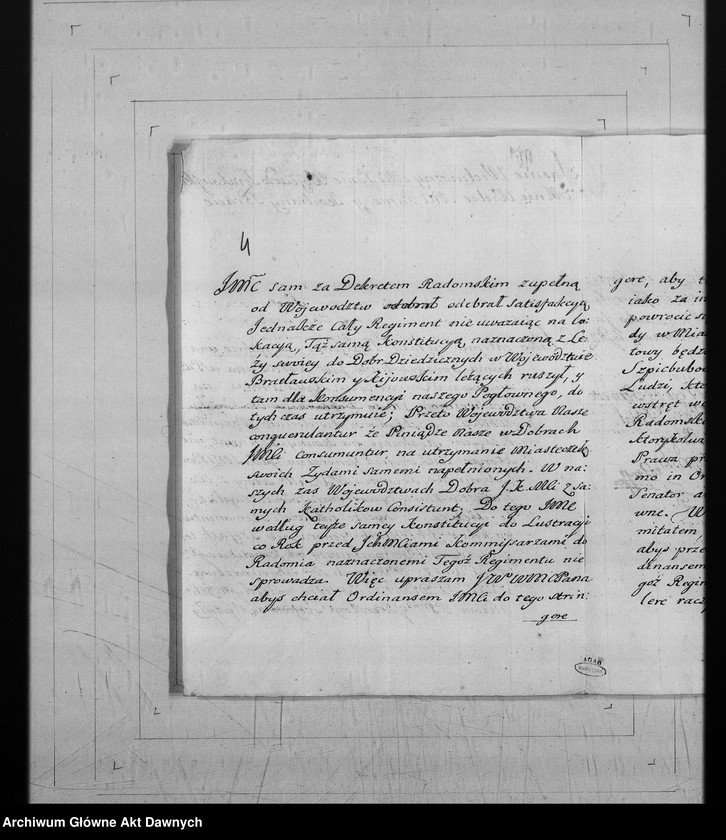 4
JMć sam za Dekretem Radomskim zupełną
od Woiewodztw odebrał odebrał satisfakcyą
Jednakże Cały Regiment nie uwazaiąc na lo-
kacyą, Tąż samą Konstitucyą, naznaczoną z Le-
ży swoiey do Dobr Dziedzicznych w Woiewodztwie
Bracławskim y Kijowskim leżących ruszył, y
tam dla Konsumencyi naszego Pogłownego, do
tych czas utrzymuie; Przeto Woiewodztwa Nasze
conquerulantur że Piniądze Nasze w Dobrach
JMCi Consumuntur, na utrzymanie Miasteczek
swoich Zydami samemi napełnionych. W na-
szych zas Woiewodztwach Dobra J.K.MCi z sa-
mych Katholikow Consistunt, Do tego JMć
według teyże samey Konstitucyi do Lustracyi
co Rok przed JchMCiami Kommissarzami do
Radomia naznaczonemi Tegoż Regimentu nie
sprowadza. Więc upraszam JWWMCPana
abys chciał Ordinansem JMCi do tego strin:
gere
gere, aby
iako za
powrocic
dy w Mia
towy będz
Szpicbubo
Ludzi, kto
wstręt
Radomsk
ktorykolwi
Prawa pr
mo in Or
Senator a
wne. W
mitatem
abys prze
dinansem
goż Regim
lere racz
Archiwum Główne Akt Dawnych